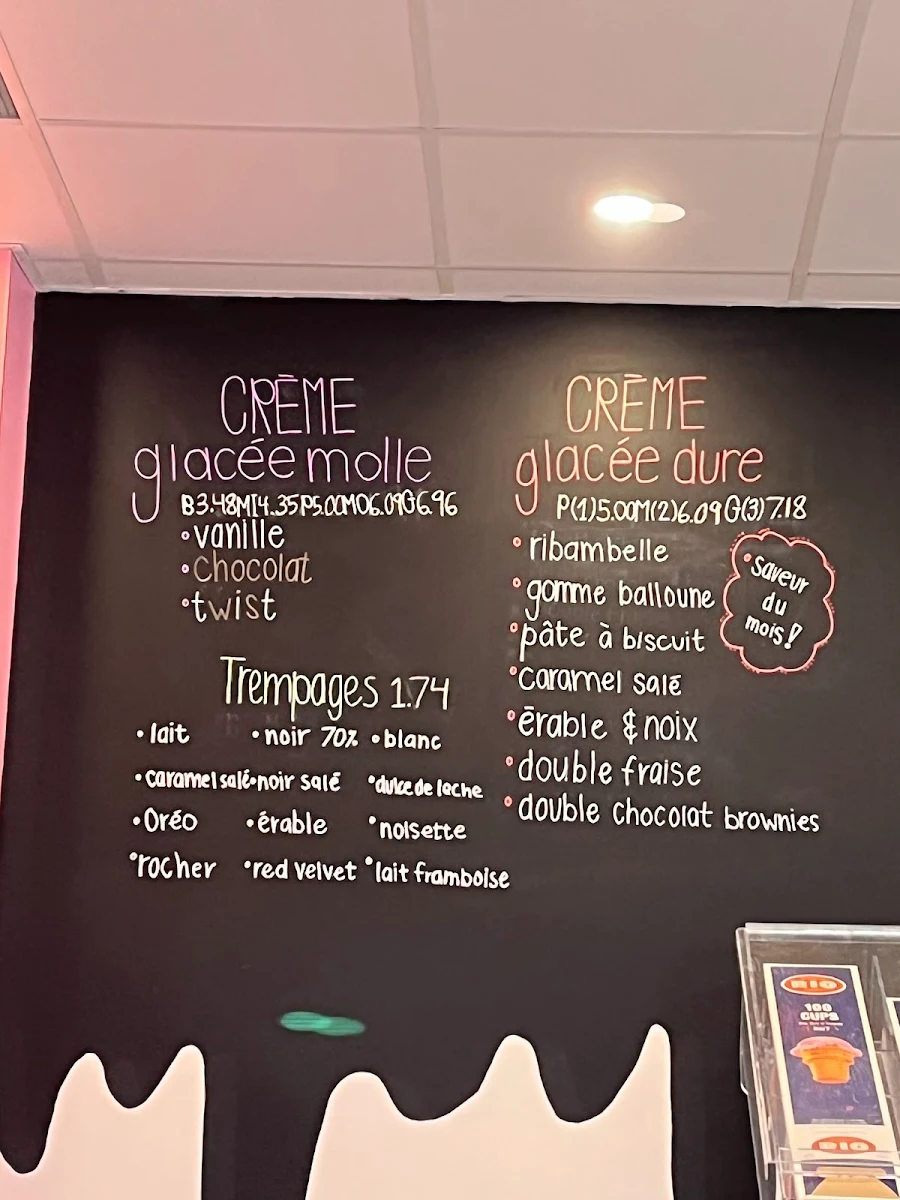 CRÈME
glacée molle
B3.48MI4.35P5.00MO6.09G6.96
•vanille
•chocolat
•twist
Trempages 1.74
•lait •noir 70% •blanc
•caramel salé •noir salé •dulce de leche
•Oréo •érable •noisette
•rocher •red velvet •lait framboise
CRÈME
glacée dure
P(1)5.00M(2)6.09G(3)7.18
•ribambelle
•gomme balloune
•pâte à biscuit
•caramel salé
•érable & noix
•double fraise
•double chocolat brownies
•Saveur
du
mois!
RIO
100
CUPS
RIO